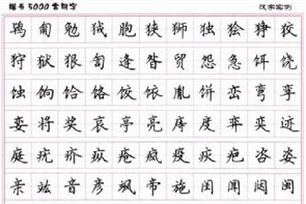 楷书5000常用字 汉字实例
鸨 匍 勉 狨 胞 狭 狮 独 狯 狰 狡
狩 狱 狠 訇 逄 昝 贸 怨 急 饵 饶
蚀 饷 饸 饹 饺 饻 胤 饼 峦 弯 孪
娈 将 奖 哀 亭 亮 庤 度 弈 奕 迹
庭 疣 疥 疭 疮 疯 疫 疢 疤 咨 姿
亲 竑 音 彦 飒 帝 施 闺 闻 闼 闽